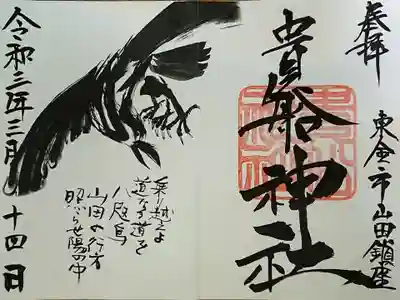 奉拝
東金市山田鎮座
貴船神社
乗り越えよ
道なき道を
八咫烏
山田の行方
照らせ陽の中
令和三年三月十四日